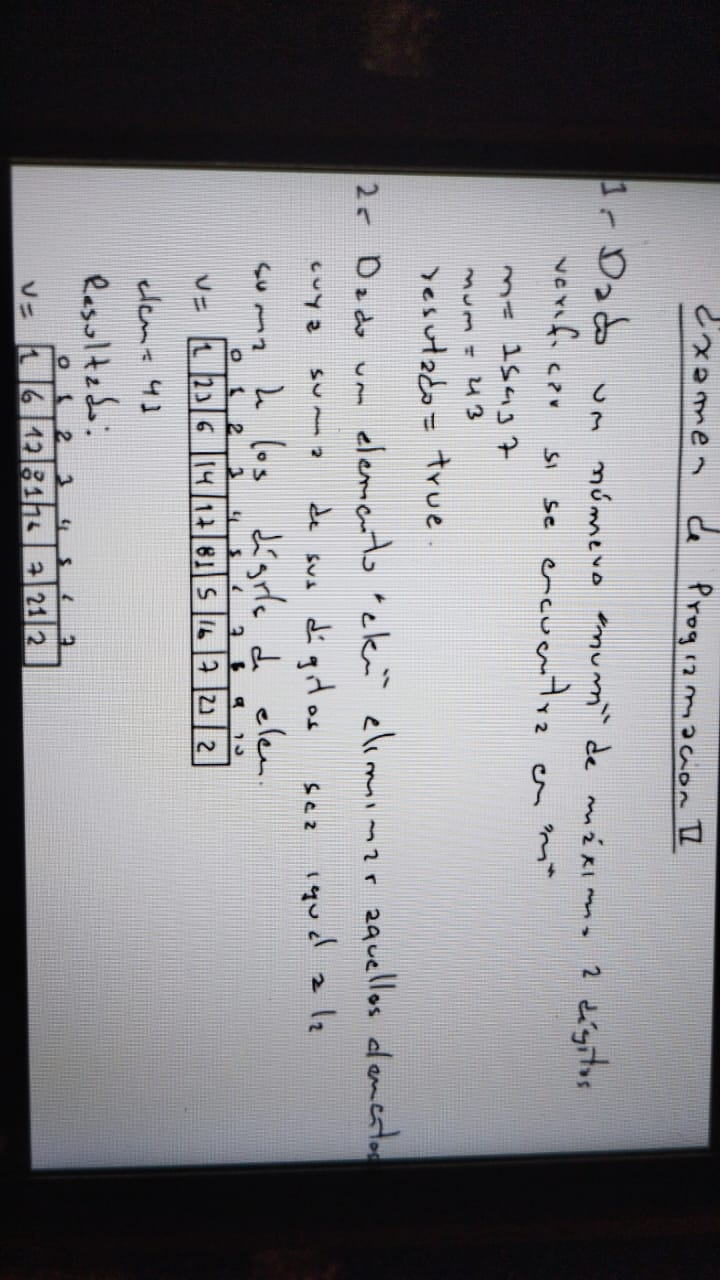 Examen de Programacion II
1- Dado un número "num" de máximo 2 dígitos
verificar si se encuentra en "n"
n= 25437
num = 43
resultado = true.
2- Dado un elemento "elem" eliminar aquellos elementos
cuya suma de sus dígitos sea igual a la
suma de los dígitos de elem.
0 1 2 3 4 5 6 7 8 9 10
v= 1 23 6 14 17 81 5 16 7 21 2
elem = 41
Resultado:
0 1 2 3 4 5 6 7
v= 1 6 17 81 16 7 21 2